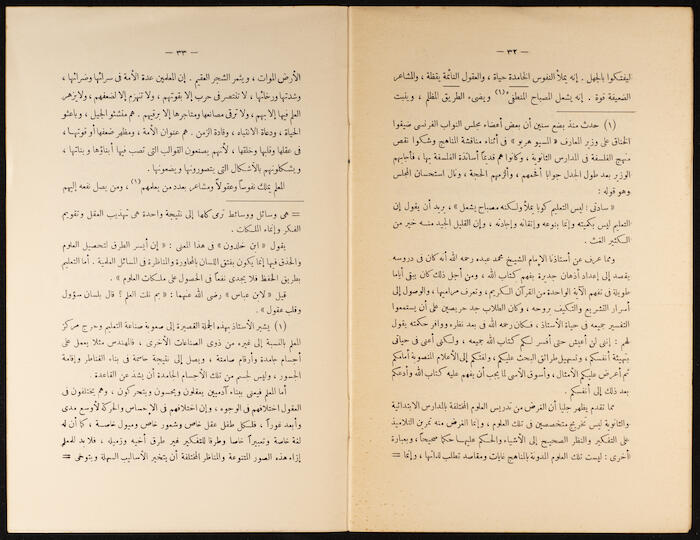 — ٣٢ —
ليفتكوا بالجهل . إنه يملأ النفوس الخامدة حياة ، والعقول النائمة يقظة ، والمشاعر
الضعيفة قوة . إنه يشعل المصباح المنطفئ (١) ويضىء الطريق المظلم ، وينبت
(١) حدث منذ بضع سنين أن بعض أعضاء مجلس النواب الفرنسى ضيقوا
الخناق على وزير المعارف « المسيو هريو » فى أثناء مناقشة المناهج وشكوا نقص
منهج الفلسفة فى المدارس الثانوية ، وكانوا هم قدعاً أساتذة الفلسفة بها ، فأجابهم
الوزير بعد طول الجدل جواباً أفحمهم ، وألزمهم الحجة ، ونال استحسان المجلس
وهو قوله :
« سادتى ! ليس التعليم كوبا يملأ ولكنه مصباح يشعل » ، يريد أن يقول إن
التعليم ليس بكميته وإنما بنوعه وإتقانه وإجادته ، وإن القليل الجيد منه خير من
الكثير الغث .
ومما عرف عن أستاذنا الإمام الشيخ محمد عبده رحمه الله أنه كان فى دروسه
يقصد إلى إعداد أذهان جديرة بفهم كتاب الله ، ومن أجل ذلك كان يبقى أياما
طويلة فى تفهم الآية الواحدة من القرآن الكريم ، وتعرف مراميها ، والوصول إلى
أسرار التشريع والتكيف روحه ، وكان الطلاب جد حريصين على أن يستمعوا
التفسير جميعه فى حياة الأستاذ ، فكان رحمه الله فى بعد نظره ووافر حكمته يقول
لهم : إننى لن أعيش حتى أفسر لكم كتاب الله جميعه ، ولكنى أعنى فى حياتى
بتهيئة أنفسكم ، وتسهيل طرائق البحث عليكم ، ولفتكم إلى الأعلام المنصوبة أمامكم
ثم أعرض عليكم الأمثال ، وأسوق الأسى لما يجب أن يفهم عليه كتاب الله وأدعكم
بعد ذلك إلى أنفسكم .
مما تقدم يظهر جليا أن الغرض من تدريس العلوم المختلفة بالمدارس الابتدائية
والثانوية ليس تخريج متخصصين فى تلك العلوم ، وإنما الغرض منه تمرين التلاميذ
على التفكير والنظر الصحيح إلى الأشياء والحكم عليها حكما صحيحاً ، وبعبارة
أخرى : ليست تلك العلوم المدونة بالمناهج غايات ومقاصد تطلب لذاتها ، وإنما =
— ٣٣ —
الأرض الموات ، ويثمر الشجر العقيم . إن المعلمين عدة الأمة فى سرائها وضرائها ،
وشدتها ورخائها ، لا تنتصر فى حرب إلا بقوتهم ، ولا تنهزم إلا لضعفهم ، ولا يزهر
العلم فيها إلا بهم ، ولا ترقى مصانعها ومتاجرها إلا برقيهم . هم منشئو الجيل ، وباعثو
الحياة ، ودعاة الانتباه ، وقادة الزمن . هم عنوان الأمة ، ومظهر ضعفها أو قوتها ،
فى عقلها وقلبها وخلقها ، لأنهم يصنعون القوالب التى تصب فيها أبناؤها وبناتها ،
ويشكلونهم بالأشكال التى يتصورونها ويصنعونها .
المعلم يملك نفوساً وعقولاً ومشاعر بعدد من يعلمهم (١) ، ومن يصل نفعه إليهم
= هى وسائل ووسائط ترمى كلها إلى نتيجة واحدة هى تهذيب العقل وتقويم
الفكر وإنماء الملكات .
يقول « ابن خلدون » فى هذا المعنى : « إن أيسر الطرق لتحصيل العلوم
والحذق فيها إنما يكون بفتق اللسان بالمحاورة والمناظرة فى المسائل العلمية . أما التعليم
بطريق الحفظ فلا يجدى نفعاً فى الحصول على ملكات العلوم » .
قيل « لابن عباس » رضى الله عنهما : « بم نلت العلم ؟ قال بلسان سؤول
وقلب عقول » .
(١) يشير الأستاذ بهذه الجملة القصيرة إلى صعوبة صناعة التعليم وحرج مركز
المعلم بالنسبة إلى غيره من ذوى الصناعات الأخرى ، فالمهندس مثلا يعمل على
أجسام جامدة وأرقام صامتة ، ويصل إلى نتيجة حاسمة فى بناء القناطر وإقامة
الجسور ، وليس لجسم من تلك الأجسام الجامدة أن يشذ عن القاعدة .
أما المعلم فيعنى ببناء آدميين يعقلون ويحسون ويتحركون ، وهم يختلفون فى
العقول اختلافهم فى الوجوه ، وإن اختلافهم فى الإحساس والحركة لأوسع مدى
وأبعد غوراً ، فلكل طفل عقل خاص وشعور خاص وميول خاصة ، كما أن له
لغة خاصة وتعبيراً خاصا وطرقا للتفكير غير طرق أخيه وزميله ، فلابد للمعلم
إزاء هذه الصور المتنوعة والمناظر المختلفة أن يتخير الأساليب السهلة ويتوخى =